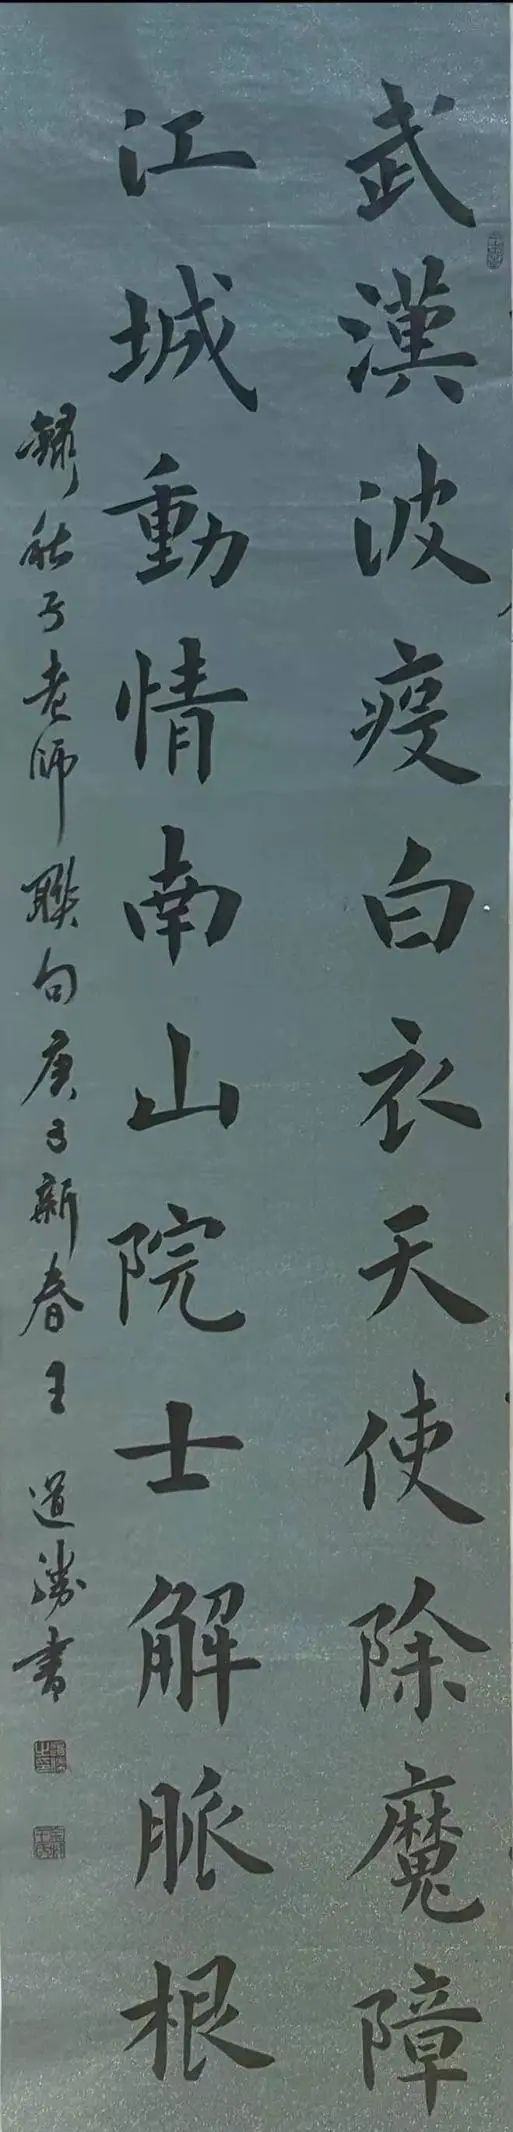 武漢波疫白衣天使除魔障
江城動情南山院士解脈根
秋子老師聯句庚子新春王道勝書